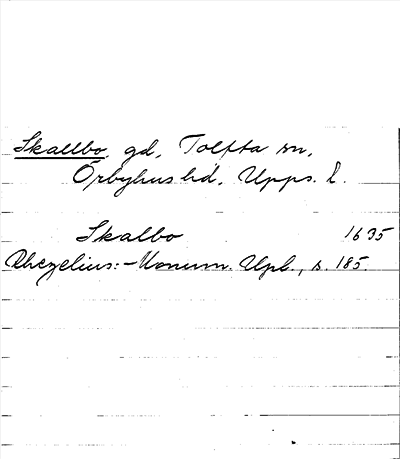 Skallbo, gd, Tolfta sn,
Örbyhus hd, Upps. l.
Skalbo 1635
Rhezelius: - Monum. Upl., s. 185.